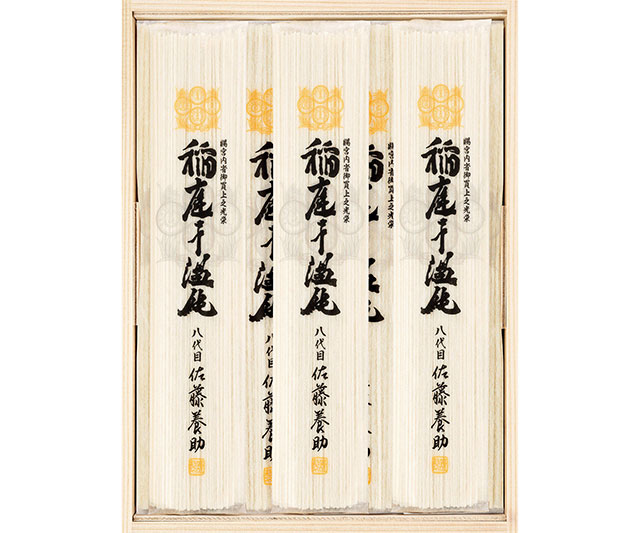 賜宮内省御買上之光栄
稲庭干温飩
八代目 佐藤養助
賜宮内省御買上之光栄
賜宮内省御買上之光栄
稲庭干温飩
八代目 佐藤養助
稲庭干温飩
八代目 佐藤養助
賜宮内省御買上之光栄
稲庭干温飩
八代目 佐藤養助